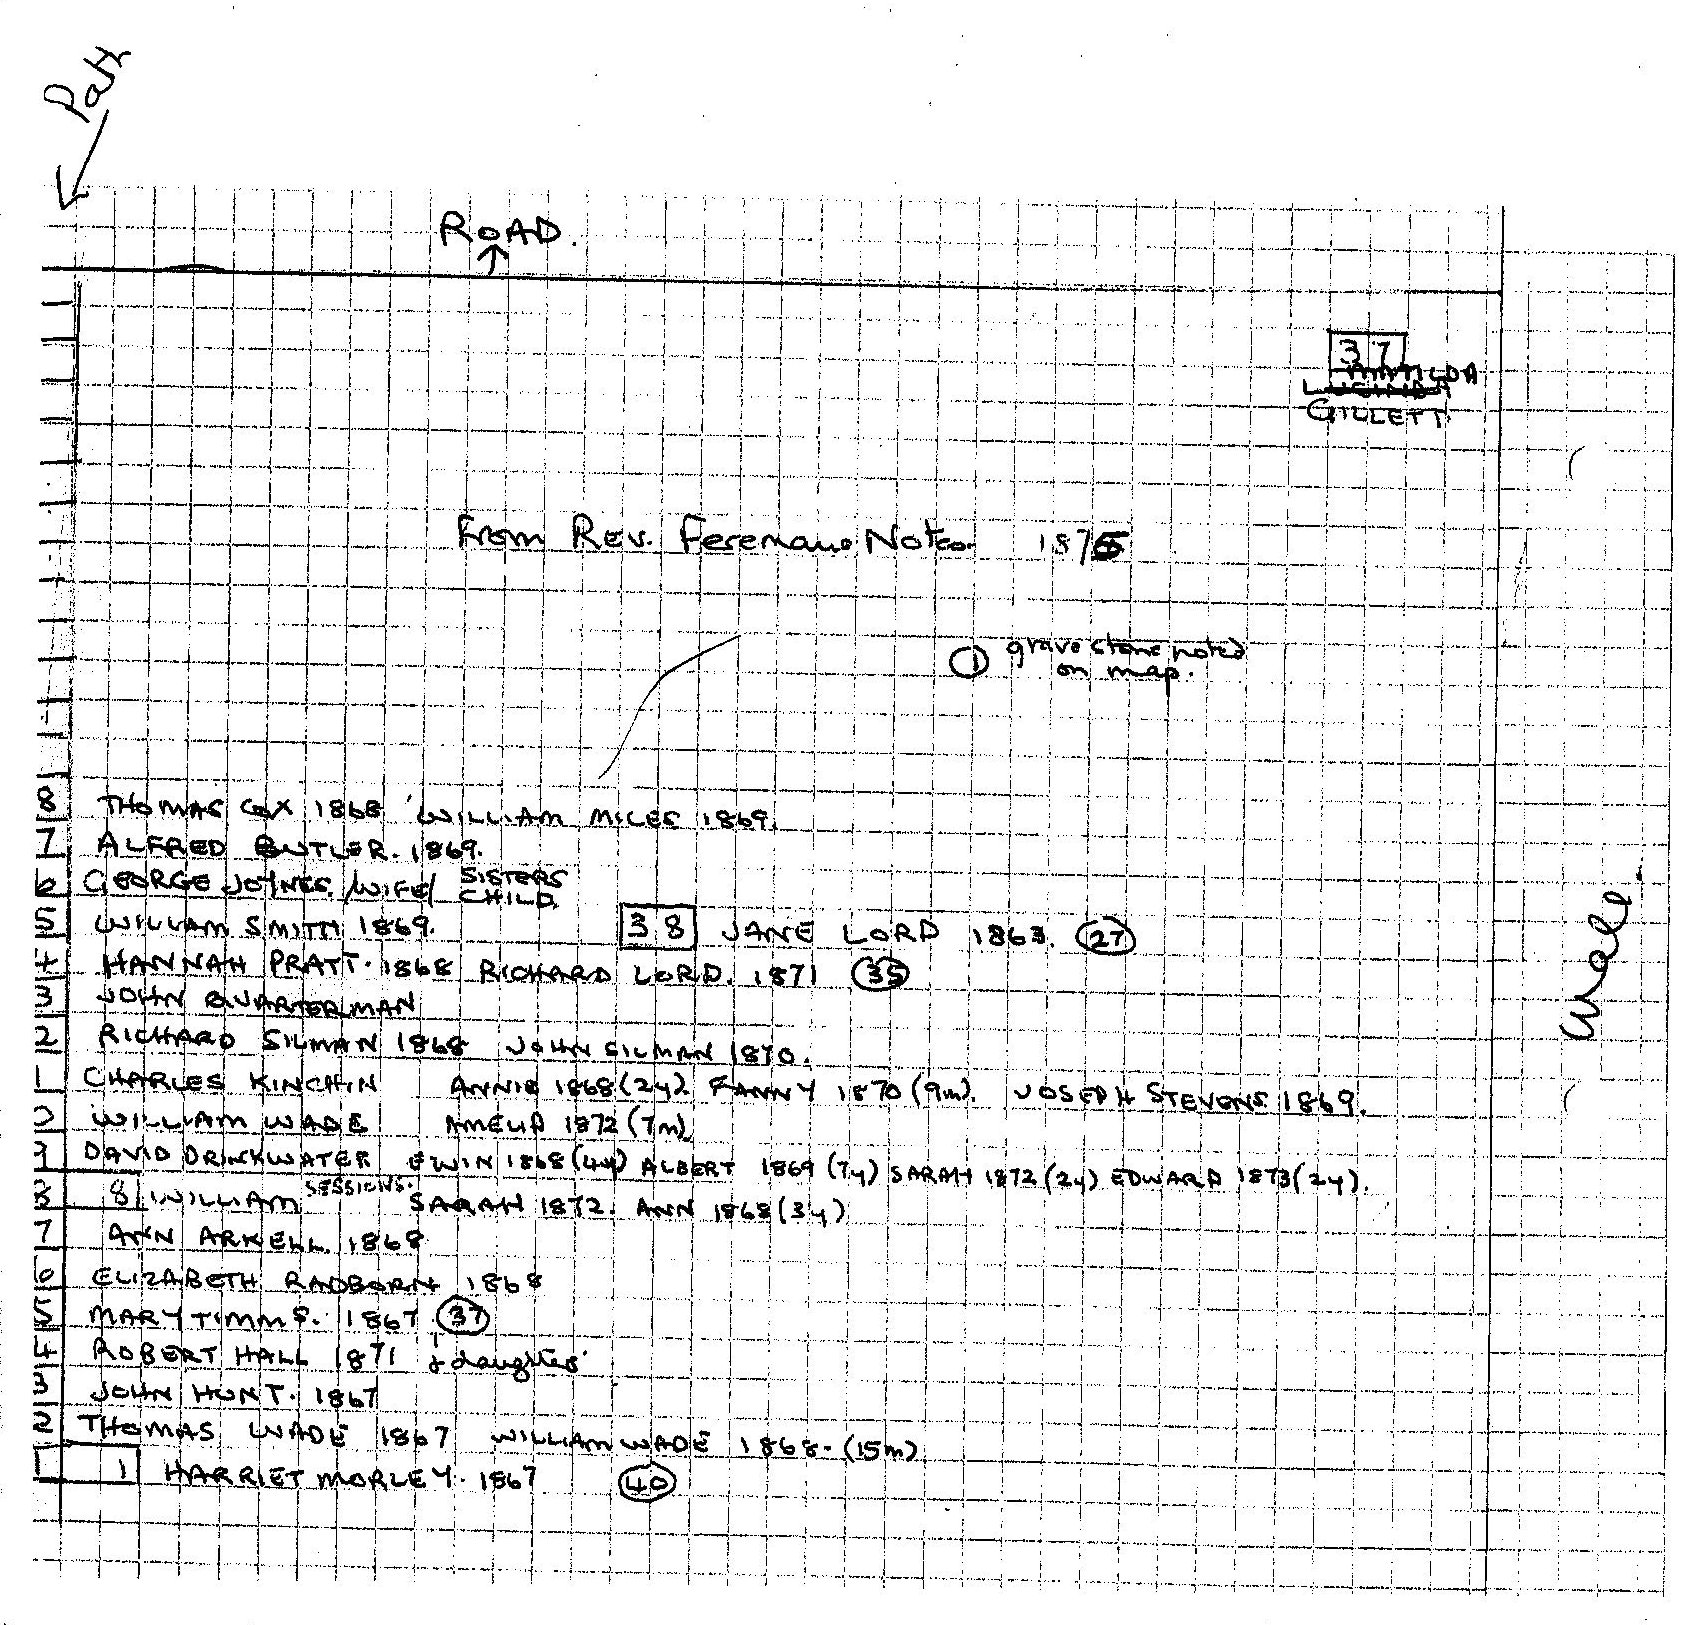 Path
ROAD.
37
MATILDA
LUCINDA
GILLETT
From Rev. Notes. 1875
① grave stone noted
on map.
8 THOMAS COX 1868 WILLIAM MILES 1869.
7 ALFRED BUTLER. 1869.
6 GEORGE JOYNES. /WIFE/ SISTERS CHILD.
5 WILLIAM SMITH 1869. 38 JANE LORD 1863. 27
4 HANNAH PRATT. 1868 RICHARD LORD. 1871 35
3 JOHN QUARTERMAN
2 RICHARD SILMAN 1868 JOHN SILMAN 1870.
1 CHARLES KINCHIN ANNIE 1868 (2y). FANNY 1870 (9m). JOSEPH STEVENS 1869.
0 WILLIAM WADE AMELIA 1872 (7m)
9 DAVID DRINKWATER EWIN 1868 (4y) ALBERT 1869 (7y) SARAH 1872 (2y) EDWARD 1873 (2y).
8 8 WILLIAM SESSIONS. SARAH 1872. ANN 1868 (3y)
7 ANN ARKELL. 1868
6 ELIZABETH RADBORN 1868
5 MARY TIMMS. 1867 37
4 ROBERT HALL 1871 & daughter
3 JOHN HUNT. 1867
2 THOMAS WADE 1867 WILLIAM WADE 1868. (15m)
1 1 HARRIET MORLEY. 1867 40
Wall